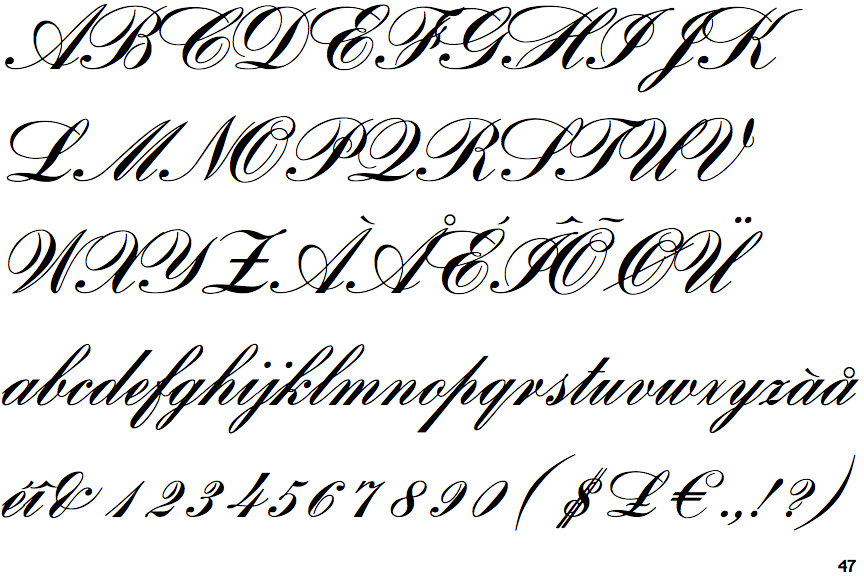 ABCDEFGHIJK
LMNOPQRSTUV
WXYZÀÅÉÎÕØÜ
abcdefghijklmnopqrstuvwxyzàå
éî&1234567890($£€.,!?)
47